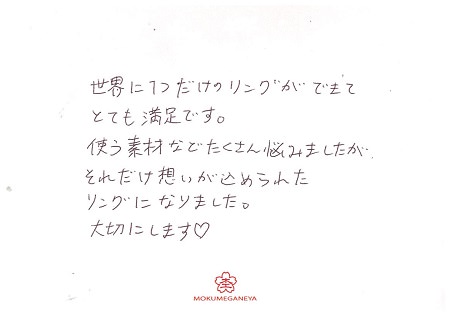 世界に1つだけのリングができて
とても満足です。
使う素材などでたくさん悩みましたが
それだけ想いが込められた
リングになりました。
大切にします♡
MOKUMEGANEYA